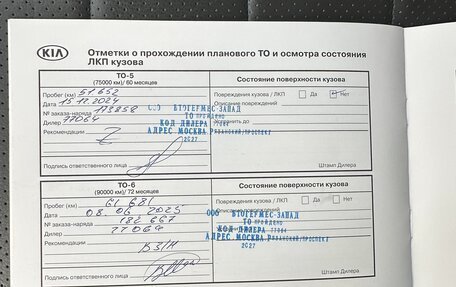 KIA
Отметки о прохождении планового ТО и осмотра состояния
ЛКП кузова
ТО-5
(75000 км)/ 60 месяцев
Состояние поверхности кузова
Пробег (км) 51.652
Повреждения кузова / ЛКП Да Нет
Дата 15.12.2024
Описание повреждений
№ заказа-наряда 173858
ООО ВТОГЕРМЕС-ЗАПАД
ТО ПРОЙДЕНО
Дилер 77064
КОД ДИЛЕРА 77064
Рекомендации Z
АДРЕС МОСКВА РЯЗАНСКИЙ/ПРОСПЕКТ
2С27
Подпись ответственного лица
Штамп Дилера
ТО-6
(90000 км)/ 72 месяцев
Состояние поверхности кузова
Пробег (км) 61 681
Повреждения
Дата 08.06.2025
ООО ВТОГЕРМЕС-ЗАПАД
№ заказа-наряда 182 667
ТО ПРОЙДЕНО
Дилер 77064
КОД ДИЛЕРА 77064
Рекомендации
АДРЕС МОСКВА РЯЗАНСКИЙ/ПРОСПЕКТ
2С27
Подпись ответственного лица
Штамп Дилера